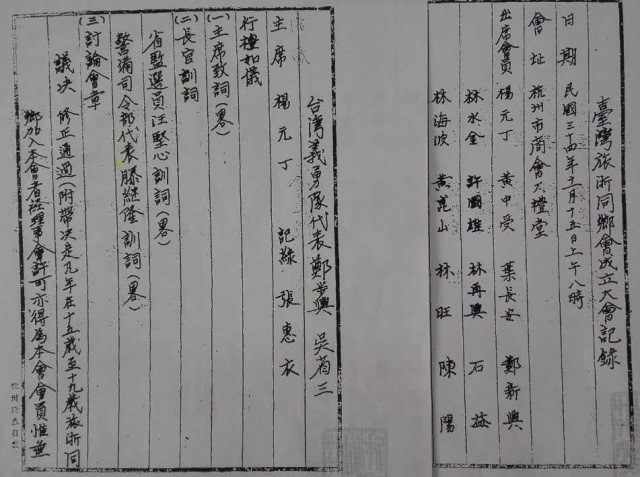 臺灣旅浙同鄉會成立大會記錄
日期 民國三四年十一月十五日上午八時
會址 杭州市商會大禮堂
出席會員 楊元丁 黃中受 葉長安 鄭新興
林水金 許國雄 林再興 石益
林海波 黃崑山 林旺 陳陽
台灣義勇隊代表 鄭 興 吳省三
主席 楊元丁 記錄 張惠衣
行禮如儀
(一)主席致詞(畧)
(二)長官訓詞
省監選員汪堅心訓詞(畧)
警備司令部代表滕繼隆訓詞(畧)
(三)討論會章
議決 修正通過(附帶決定凡年在十五歲至十九歲旅浙同
鄉加入本會者經理事會許可亦得為本會會員惟無